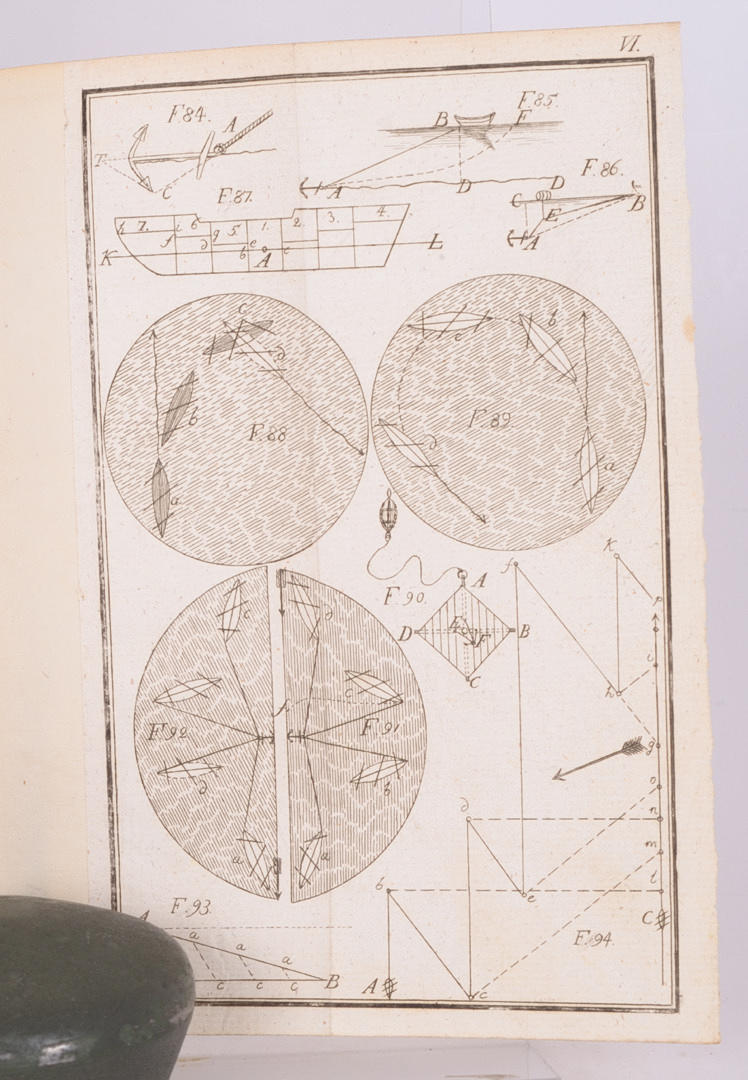 VI.
F. 84.
A
T
C
F. 85.
B
F
A
D
D
F. 86.
C
B
E
A
F. 87.
h 7. i 6 5 1. 2. 3. 4.
f d g b e c
K A L
F. 88
c
d
b
a
F. 89.
c
b
d
a
F. 90.
A
D E F B
C
f
K
i
h
g
o
n
m
l
C
F. 92
c
d
a
F. 91
d
c
b
a
F. 93
A
a a a
c c c B
F. 94.
d
e
b
A c